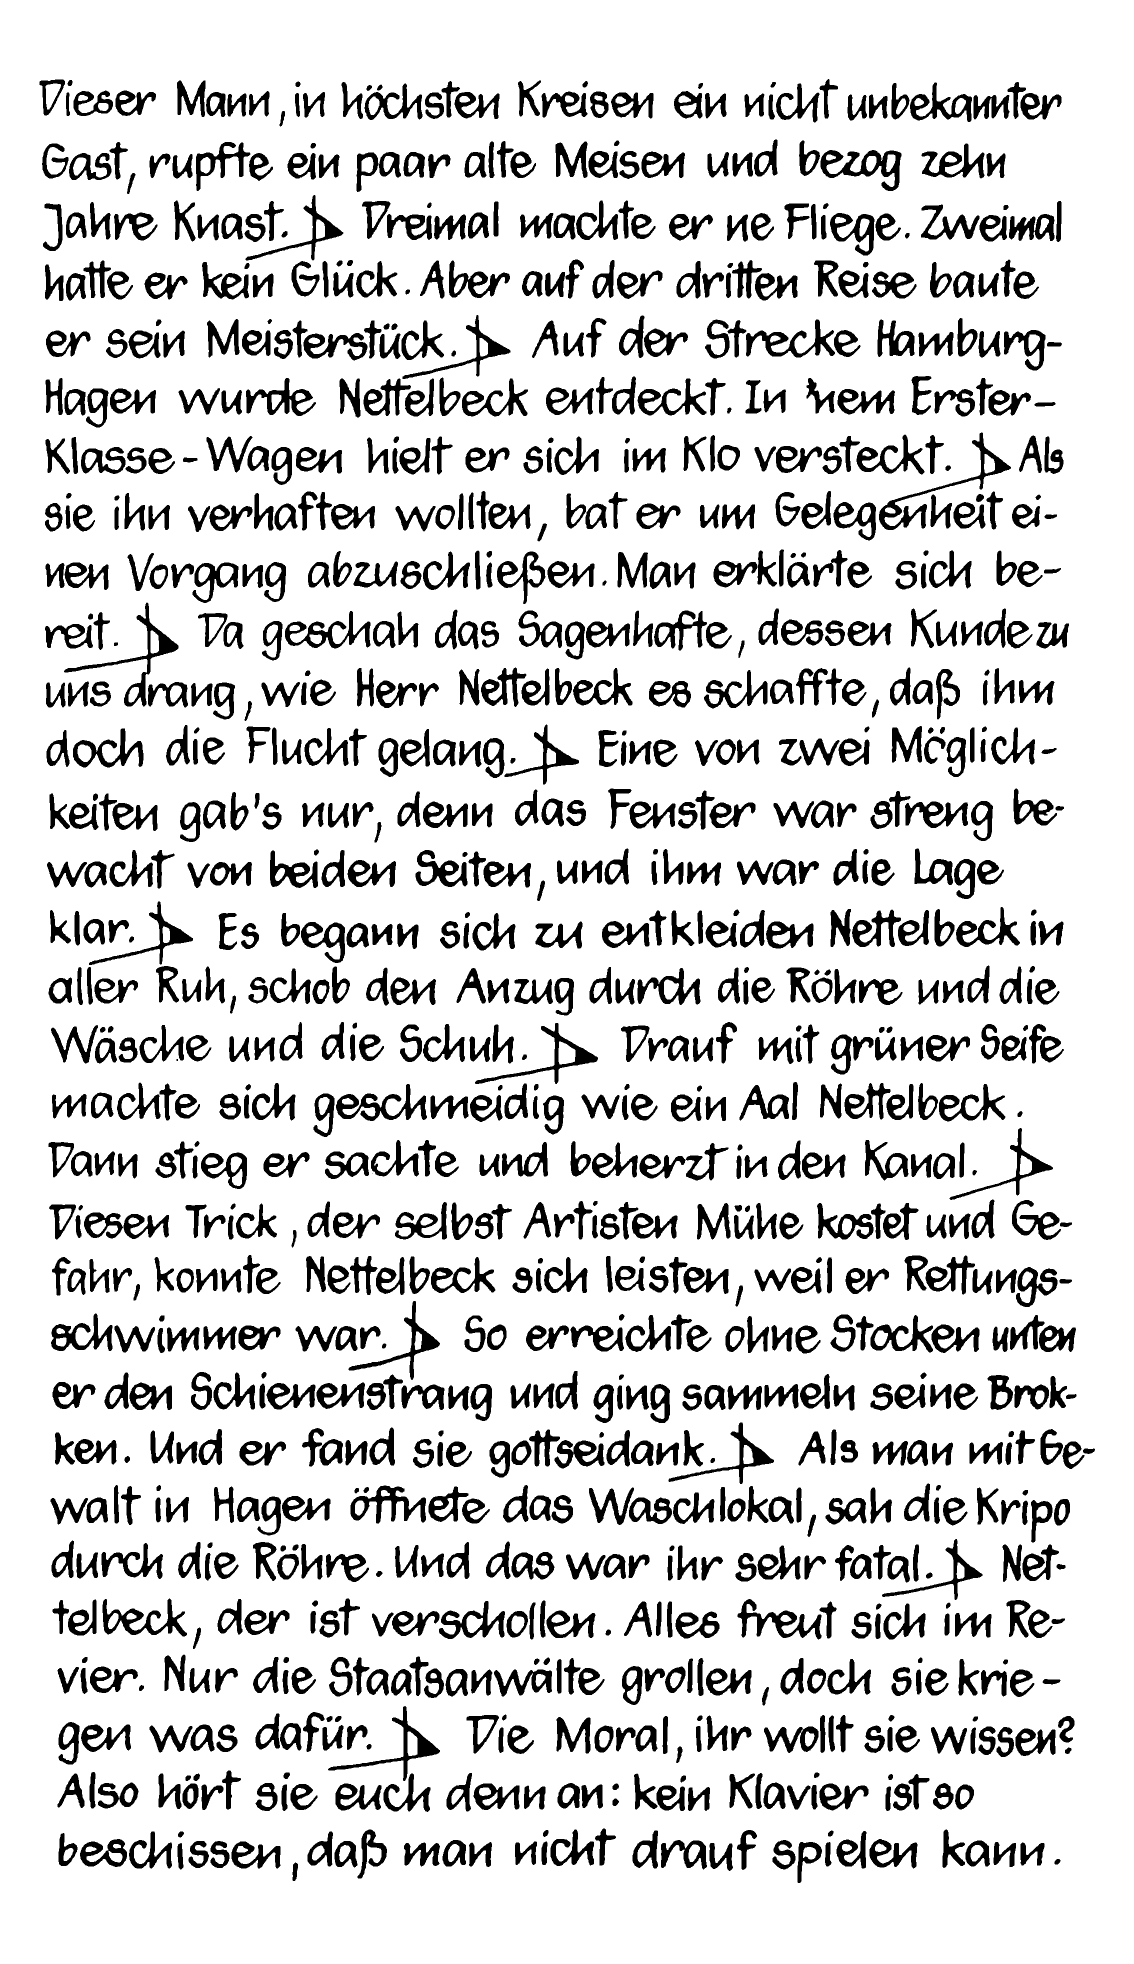 Dieser Mann, in höchsten Kreisen ein nicht unbekannter
Gast, rupfte ein paar alte Meisen und bezog zehn
Jahre Knast. Dreimal machte er ne Fliege. Zweimal
hatte er kein Glück. Aber auf der dritten Reise baute
er sein Meisterstück. Auf der Strecke Hamburg-
Hagen wurde Nettelbeck entdeckt. In 'nem Erster-
Klasse-Wagen hielt er sich im Klo versteckt. Als
sie ihn verhaften wollten, bat er um Gelegenheit ei-
nen Vorgang abzuschließen. Man erklärte sich be-
reit. Da geschah das Sagenhafte, dessen Kunde zu
uns drang, wie Herr Nettelbeck es schaffte, daß ihm
doch die Flucht gelang. Eine von zwei Möglich-
keiten gab's nur, denn das Fenster war streng be-
wacht von beiden Seiten, und ihm war die Lage
klar. Es begann sich zu entkleiden Nettelbeck in
aller Ruh, schob den Anzug durch die Röhre und die
Wäsche und die Schuh. Drauf mit grüner Seife
machte sich geschmeidig wie ein Aal Nettelbeck.
Dann stieg er sachte und beherzt in den Kanal.
Diesen Trick, der selbst Artisten Mühe kostet und Ge-
fahr, konnte Nettelbeck sich leisten, weil er Rettungs-
schwimmer war. So erreichte ohne Stocken unten
er den Schienenstrang und ging sammeln seine Brok-
ken. Und er fand sie gottseidank. Als man mit Ge-
walt in Hagen öffnete das Waschlokal, sah die Kripo
durch die Röhre. Und das war ihr sehr fatal. Net-
telbeck, der ist verschollen. Alles freut sich im Re-
vier. Nur die Staatsanwälte grollen, doch sie krie-
gen was dafür. Die Moral, ihr wollt sie wissen?
Also hört sie euch denn an: kein Klavier ist so
beschissen, daß man nicht drauf spielen kann.